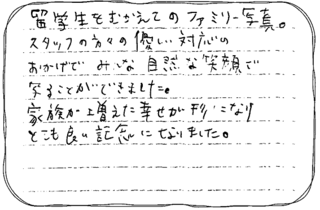 留学生をむかえてのファミリー写真。
スタッフの方々の優しい対応の
おかげでみんな自然な笑顔で
写ることができました。
家族が増えた幸せが形になり
とても良い記念になりました。